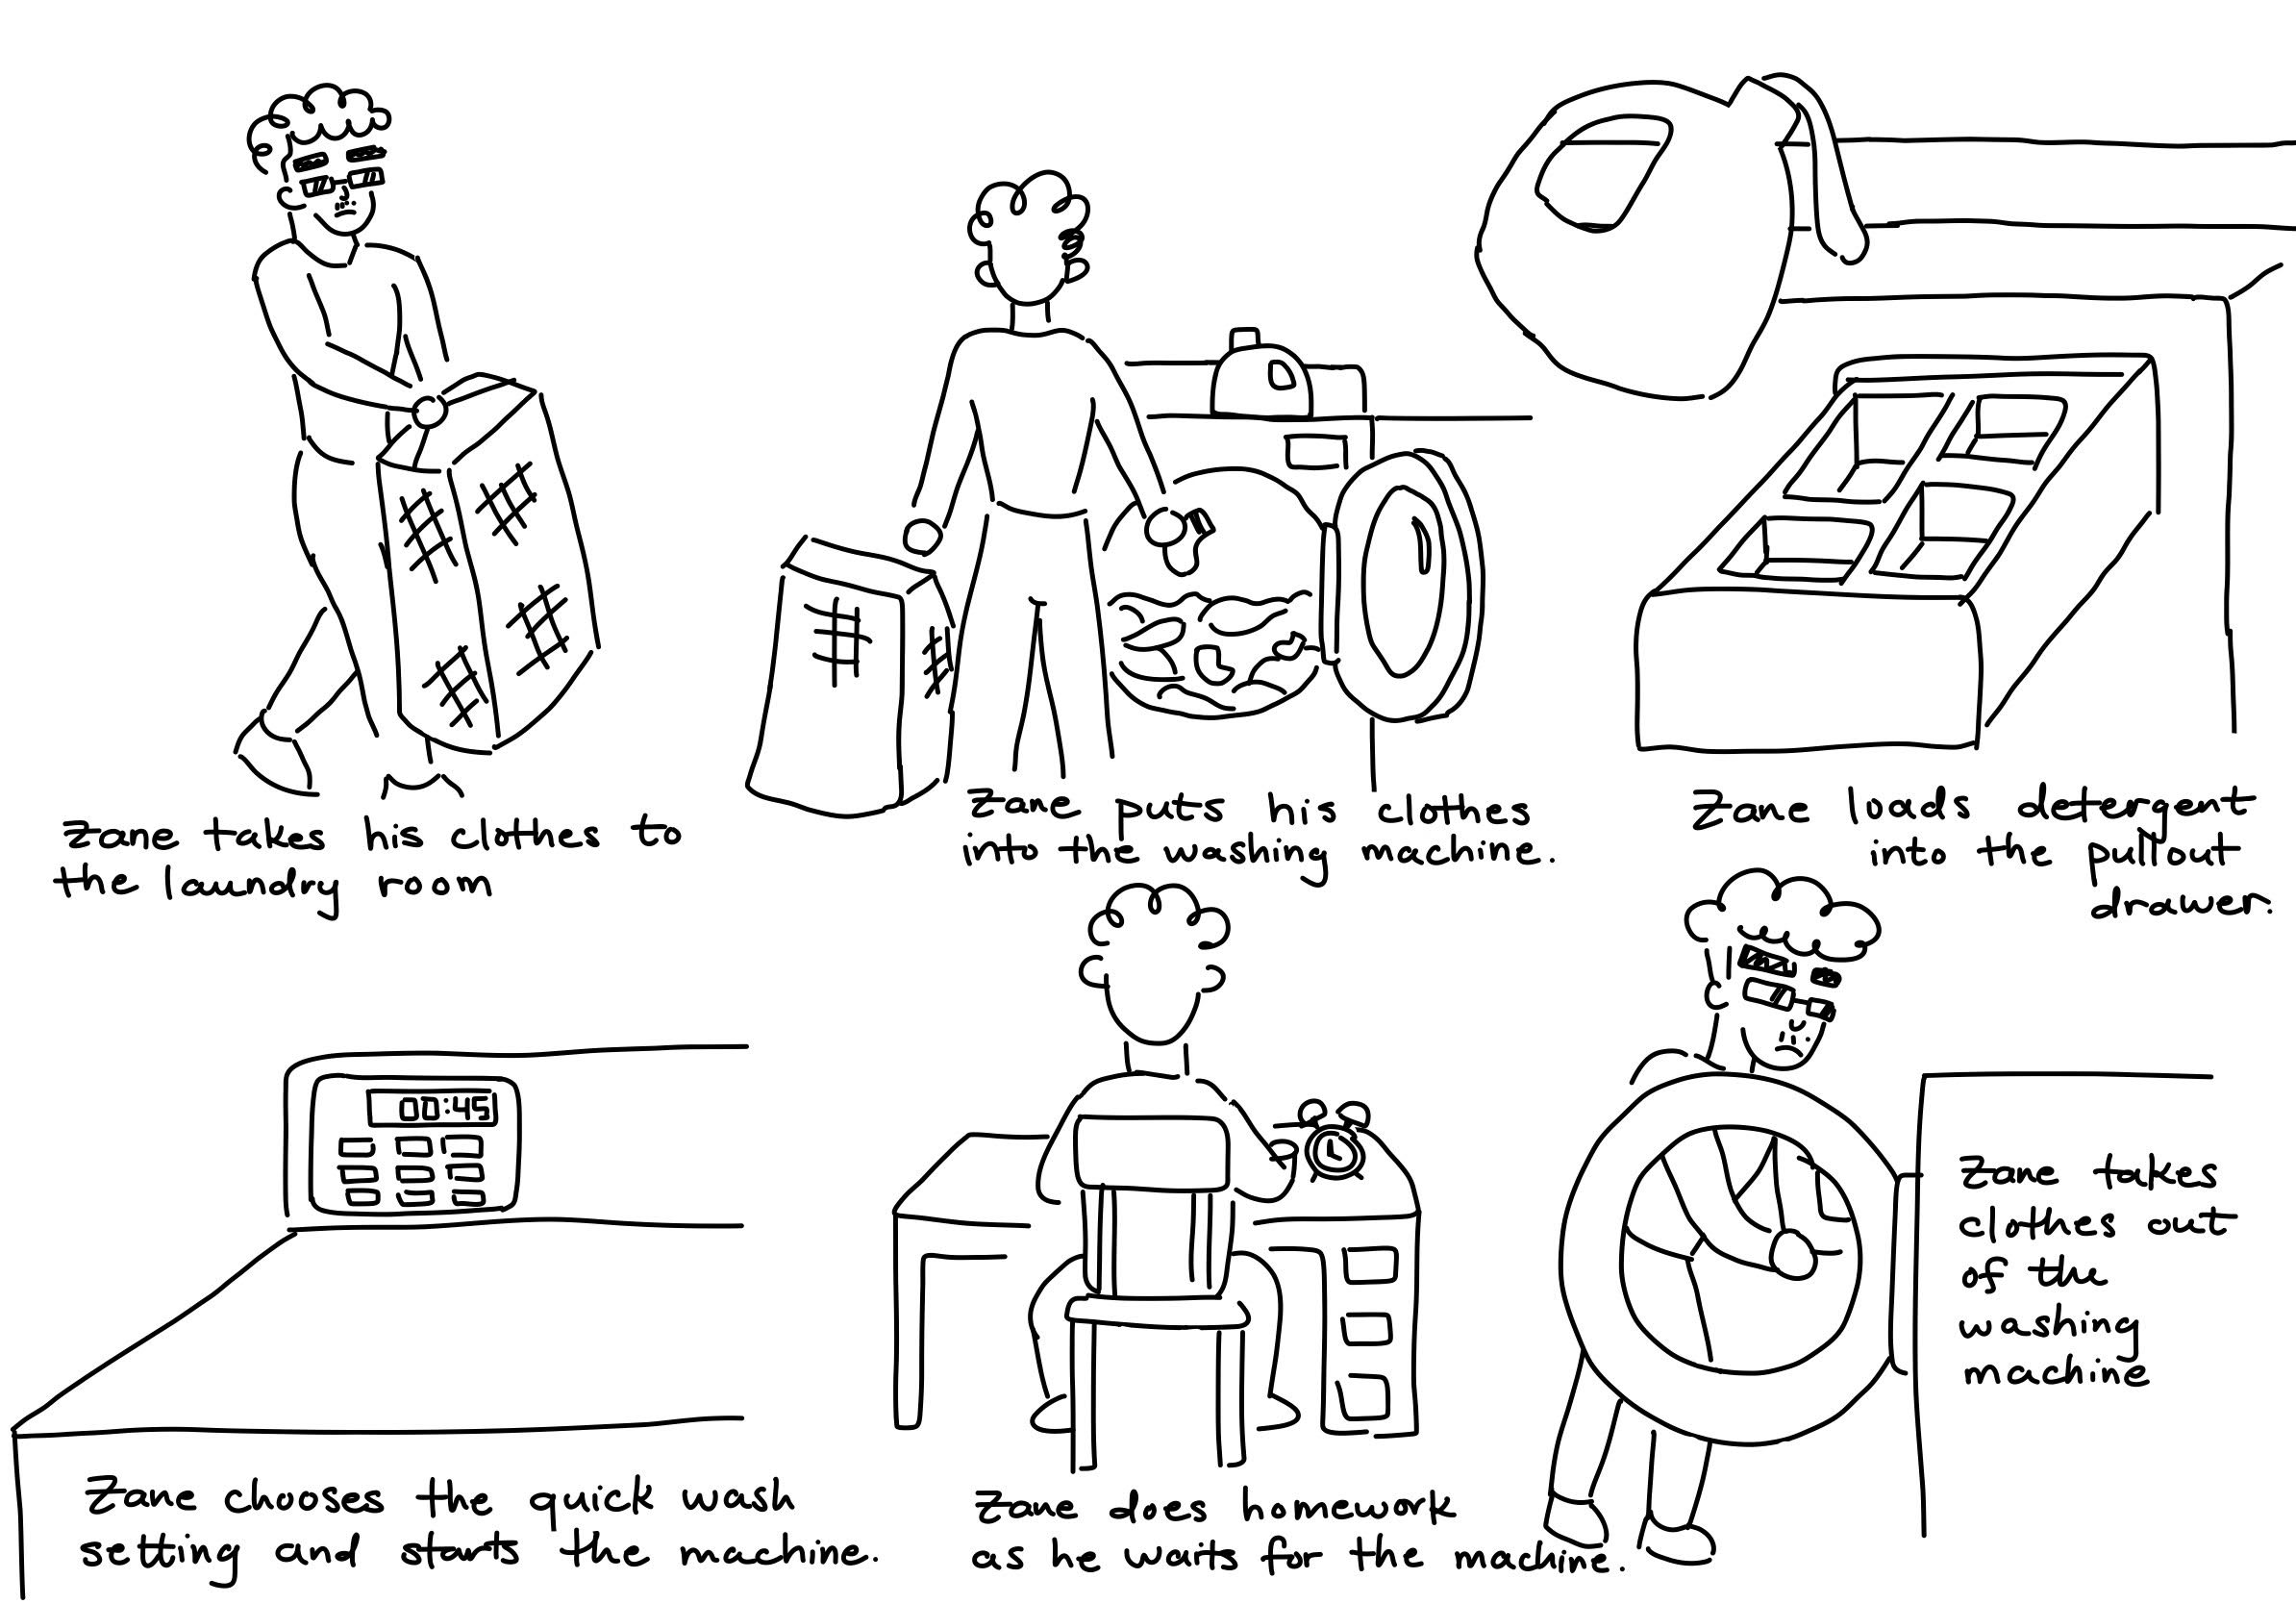 Zane takes his clothes to
the laundry room
Zane puts his clothes
into the washing machine.
Zane loads detergent
into the pullout
drawer.
00:45
Zane chooses the quick wash
setting and starts the machine.
Zane does homework
as he waits for the machine.
Zane takes
clothes out
of the
washing
machine